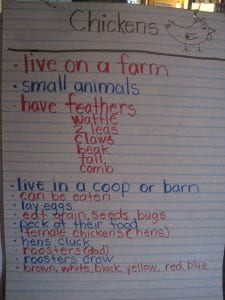 Chickens
• live on a farm
• small animals
• have feathers
wattle
2 legs
claws
beak
tail
comb
• live in a coop or barn
• can be eaten
• lay eggs
• eat grain, seeds, bugs
• peck at their food
• female chickens (hens)
• hens cluck
• roosters (dad)
• roosters crow
• brown, white, black, yellow, red, blue